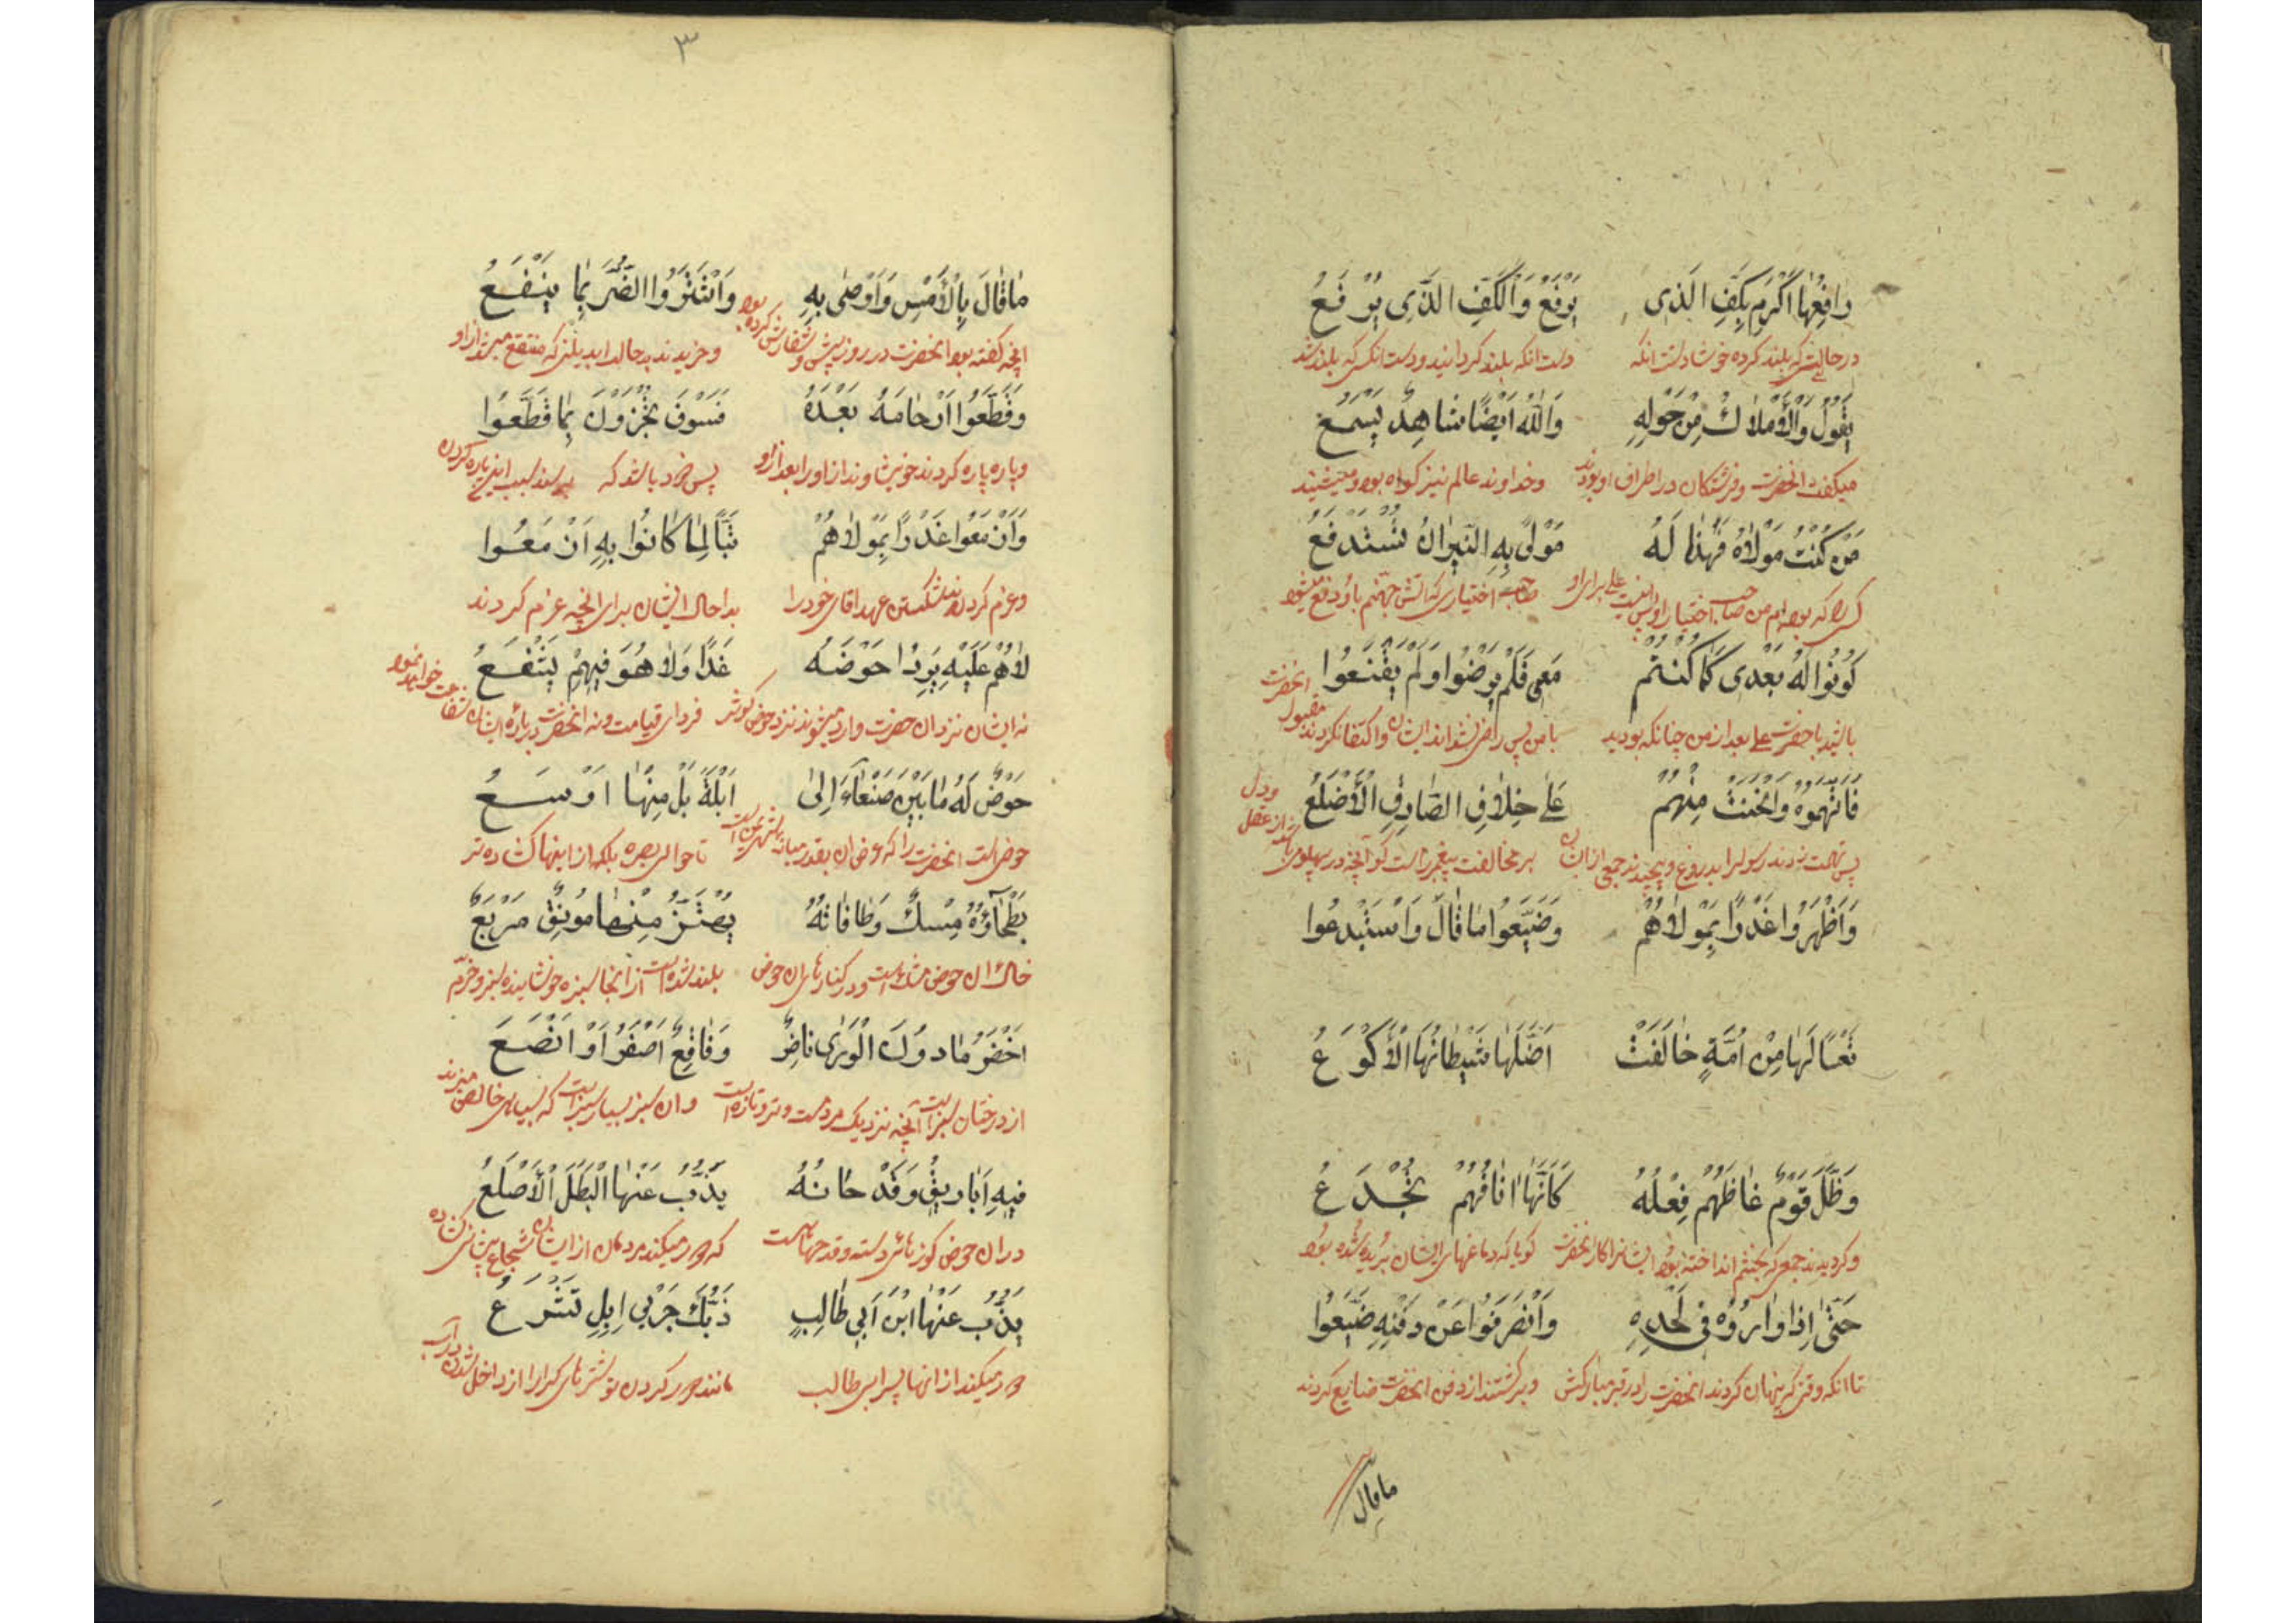 رافِعُها اَكْرِم بِكَفِّ الَّذی یَرْفَعُ وَالْكَفِّ الَّذی یُرْفَعُ
در حالتی که بلند کرده خوشا دست انکه دست انکه بلند کردانید و دست انکس که بلند شد
یَقُولُ وَالْاَمْلاكُ مِنْ حَوْلِهِ وَاللهُ اَیْضًا شاهِدٌ یَسْمَعُ
میکفت انحضرت و فرشتکان در اطراف او بودند و خداوند عالم نیز کواه بود و میشنید
مَنْ كُنْتُ مَوْلاهُ فَهٰذا لَهُ مَوْلیً بِهِ النّیرانُ تُسْتَدْفَعُ
کسی را که بوده ام من صاحب اختیار او پس اینست علی برای او صاحب اختیاری که اتش جهنم باو دفع میشود
كُونُوا لَهُ بَعْدی كَما كُنْتُمْ مَعی فَلَمْ یَرْضَوْا وَلَمْ یَقْنَعُوا
باشید با حضرت علی بعد از من چنانکه بودید با من پس راضی نشدند ایشان و اکتفا نکردند انحضرت مقبول
فَاتَّهَمُوهُ وَانْحَنَتْ مِنْهُمْ عَلیٰ خِلافِ الصّادِقِ الْاَضْلُعُ
پس تهمت زدند رسول را بدروغ و پیچیدند جمعی از ایشان بر مخالفت پیغمبر راست کو آنچه در پهلوی
ودل
از عقل
وَاَظْهَرُوا غَدْرًا بِمَوْلاهُمْ وَضَیَّعُوا ما قالَ وَاسْتَبْدَعُوا
تَعْسًا لَها مِنْ اُمَّةٍ خالَفَتْ اَضَلَّها شَیْطانُهَا الْاَكْوَعُ
وَظَلَّ قَوْمٌ غاظَهُمْ فِعْلُهُ كَاَنَّما انافُهُمْ تُجْدَعُ
و کردیدند جمعی که بخشم انداخته بود ایشانرا کار انحضرت کویا که دماغهای ایشان بریده شده بود
حَتّیٰ اِذا وارَوْهُ فی لَحْدِهِ وَانْصَرَفُوا عَنْ دَفْنِهِ ضَیَّعُوا
تا انکه وقتی که پنهان کردند انحضرت را در قبر مبارکش و برکشتند از دفن انحضرت ضایع کردند
ما قال
۳
ما قالَ بِالْاَمْسِ وَاَوْصیٰ بِهِ وَاشْتَرَوُا الضُّرَّ بِما یَنْفَعُ
انچه کفته بود انحضرت در روز پیش و سفارش کرده بود و خریدند بد حالرا بدیلی که منتفع میشد از او
وَقَطَّعُوا اَرْحامَهُ بَعْدَهُ فَسَوْفَ یُجْزَوْنَ بِما قَطَّعُوا
و پاره پاره کردند خویشاوندان او را بعد از او پس زود باشد که بسبب این پاره کردن
وَاَزْمَعُوا غَدْرًا بِمَوْلاهُمْ تَبًّا لِما كانُوا بِهِ اَزْمَعُوا
و عزم کردند بشکستن عهد اقای خود را بدا حال ایشان برای انچه عزم کردند
لاهُمْ عَلَیْهِ یَرِدُوا حَوْضَهُ غَدًا وَلا هُوَ فیهِمْ یَشْفَعُ
نه ایشان نزد ان حضرت وارد میشوند نزد حوض کوثر فردای قیامت و نه انحضرت درباره ایشان شفاعت خواهد نمود
حَوْضٌ لَهُ ما بَیْنَ صَنْعاءَ اِلیٰ اَیْلَةَ بَلْ مِنْها اَوْسَعُ
حوضی است انحضرت را که عرض ان بقدر میانه شهر یمن است تا حوالی بصره بلکه از اینها کشاده تر
بَطْحاؤُهُ مِسْكٌ وَحافاتُهُ یَهْتَزُّ مِنْها مُونِقٌ مَرْبَعٌ
خاک ان حوض مشک است و در کنارهای ان حوض بلند شده است از انجا سبزه خوشاینده سبز و خرم
اَخْضَرُ ما دُونَ الْوَریٰ ناضِرٌ وَفاقِعٌ اَصْفَرُ اَوْ اَنْصَعُ
از درختان سبز است آنچه نزدیک مردم است و تر و تازه است و ان سبز بسیار سبز است که بسیاهی خالص میزند
فیهِ اَباریقُ وَقَدْ حانَهُ یَذُبُّ عَنْهَا الْبَطَلُ الْاَصْلَعُ
در ان حوض کوزهای دسته و قدحهاست که دور میکند مردمان از ایشان شجاع پیشانی کشاده
یَذُبُّ عَنْهَا ابْنُ اَبی طالِبٍ ذَبَّكَ جَرْبیٰ اِبِلٍ تَشْرَعُ
دور میکند از انها پسر ابی طالب مانند دور کردن تو شترهای کر را از داخل شدن در آب